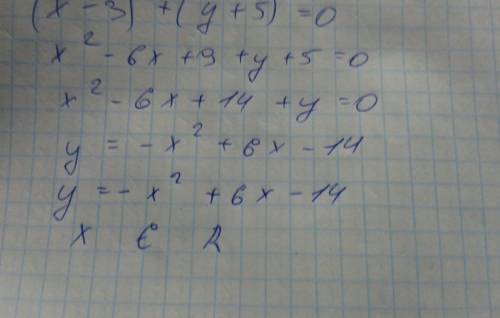 (x - 3) + (y + 5) = 0
x² - 6x + 9 + y + 5 = 0
x² - 6x + 14 + y = 0
y = - x² + 6x - 14
y = - x² + 6x - 14
x ∈ R